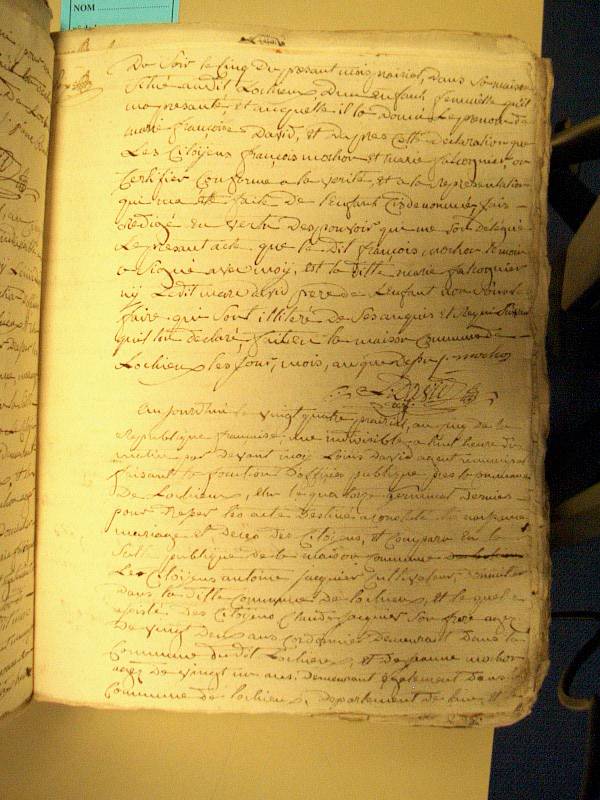 NOM
Du soir le cinq du presant mois prairial, dans sa maison
situé audit Lochieux d'un enfant femmelle qu'il
ma presanté et auquelle il la donné le prenom de
marie françoise David, et dapres cette declaration que
Les Citoÿens françois mochon et marie falconnier on
Certifier Conforme a la verité, et a la representation
qui ma été faite de l'enfant cidenommez jais
redigé en vertu des pouvoir qui me sont delegué
Le presant acte que le dit françois mochon temoin
a signé avec moÿ, et la ditte marie falconnier
nÿ Ledit marc david pere de L'enfant non
faire qui sont illiteré de ses enquis et requis
qu'il on declaré fait en la maison Commune de
Lochieux les jour, mois, an que dessu f. mochon
L. David
Aujourd'huÿ vingt quatre prairial, an cinq de la
Republique françoise, une indivisible, a huit heure du
matin par devant moÿ Louis David agent municipal
faisant la fonction d'officier publique de la commune
De Lochieux, Elu le quatorze germinal dernier
pour dresser les acte destiné a constaté les naissance
mariage et deces des Citoÿens, est comparu en la
Salle publique de la maison commune
Les Citoÿens antoine jacquier Cultivateur, domicilié
dans la ditte Commune de lochieux, et lequel
assisté des Citoÿens Claude jacquier son frere agez
De vingt deux ans Cordonnier demeurant dans la
Commune dudit Lochieux, et de jeanne mochon
agez de vingt six ans demeurant egalement dans la
Commune de lochieux, departement de